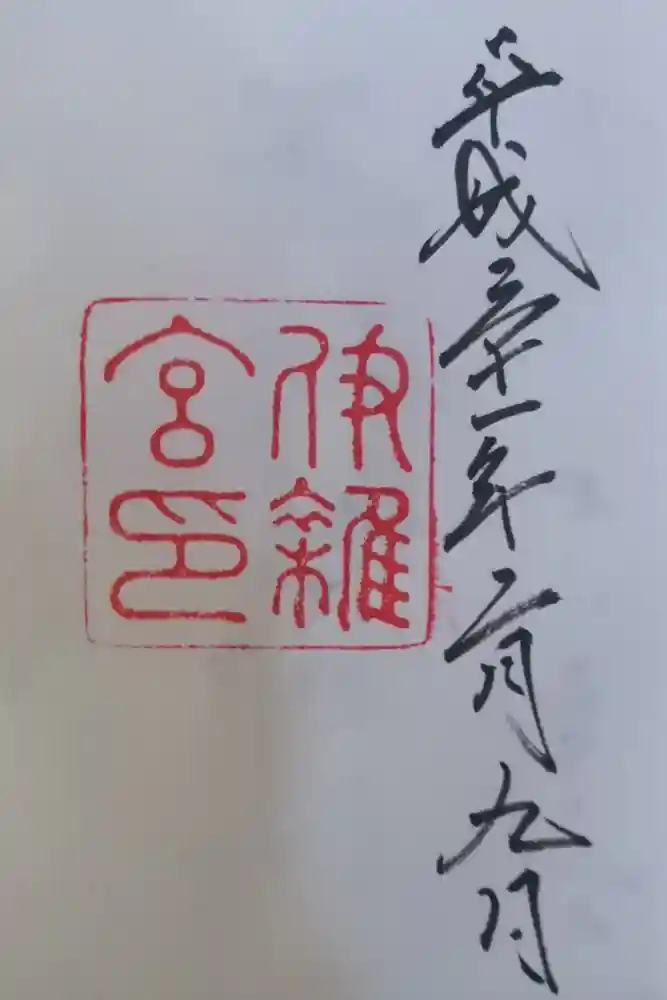 平成三十一年二月九日
伊雜
宮印